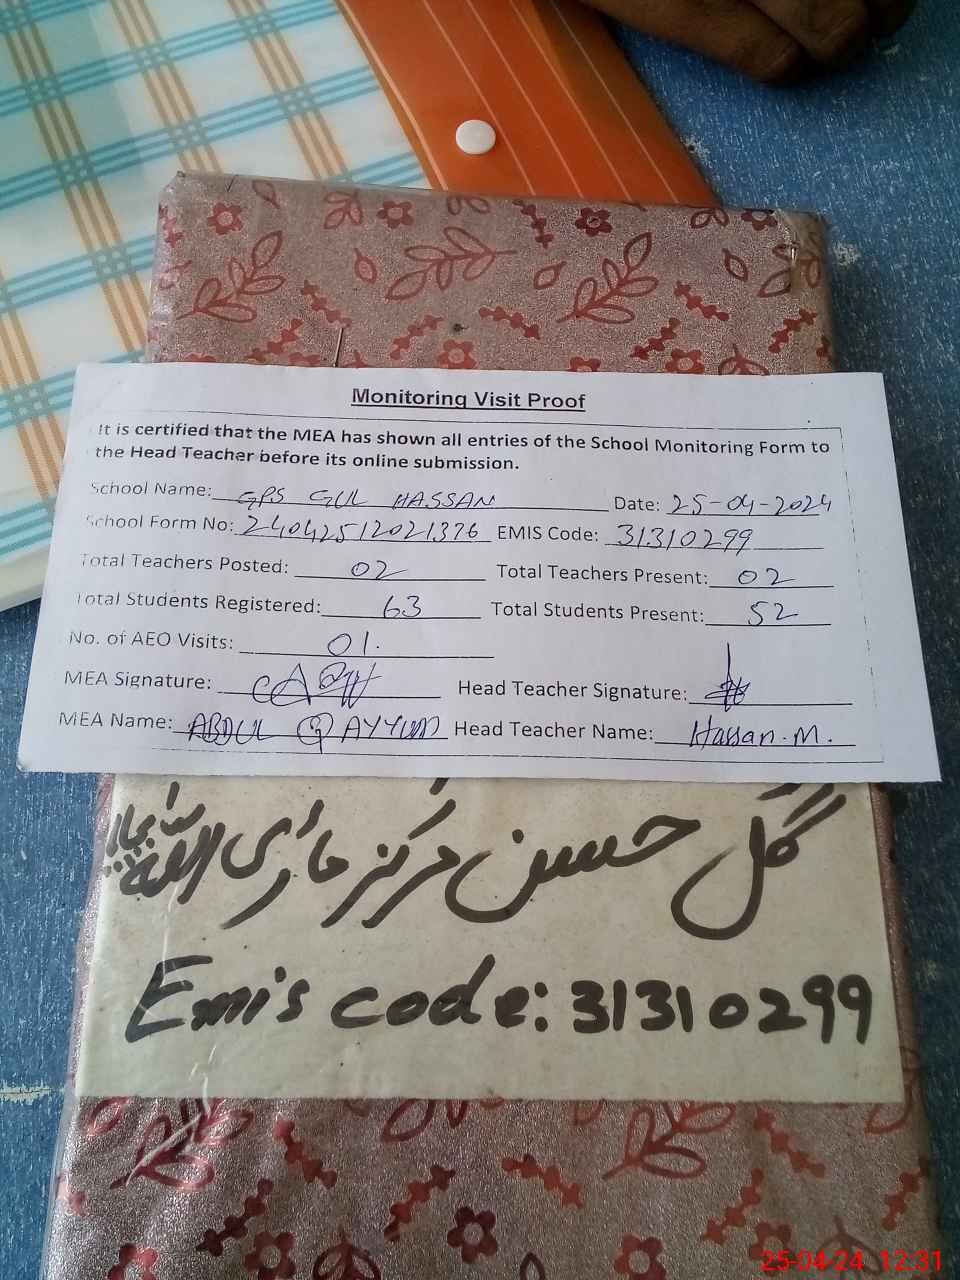 Monitoring Visit Proof
It is certified that the MEA has shown all entries of the School Monitoring Form to
the Head Teacher before its online submission.
School Name: GPS GUL HASSAN Date: 25-04-2024
School Form No: 24042512021376 EMIS Code: 31310299
Total Teachers Posted: 02 Total Teachers Present: 02
Total Students Registered: 63 Total Students Present: 52
No. of AEO Visits: 01.
MEA Signature: Head Teacher Signature:
MEA Name: ABDUL QAYYUM Head Teacher Name: Hassan. M.
گل حسن مرکز ماڑی اللہ بچایا
Emis code: 31310299
25-04-24 12:31